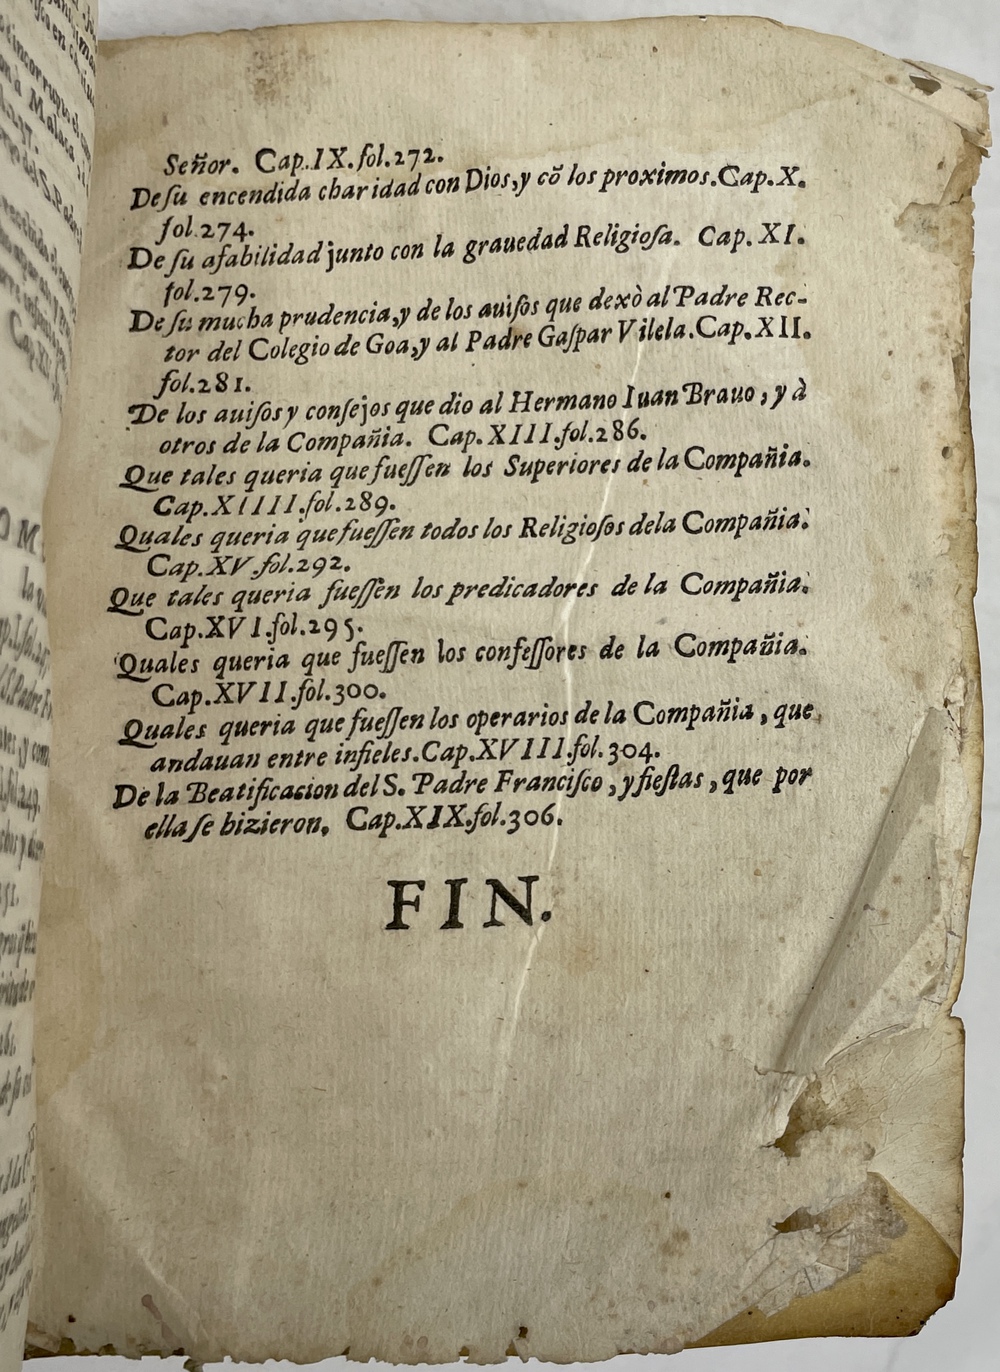 Señor. Cap.IX.fol.272.
De ſu encendida charidad con Dios,y cõ los proximos.Cap.X.
fol.274.
De ſu afabilidad junto con la grauedad Religioſa. Cap.XI.
fol.279.
De ſu mucha prudencia,y de los auiſos que dexò al Padre Rec-
tor del Colegio de Goa,y al Padre Gaſpar Vilela.Cap.XII.
fol.281.
De los auiſos y conſejos que dio al Hermano Iuan Brauo, y à
otros de la Compañia. Cap.XIII.fol.286.
Que tales queria que fueſſen los Superiores de la Compañia.
Cap.XIIII.fol.289.
Quales queria que fueſſen todos los Religioſos dela Compañia.
Cap.XV.fol.292.
Que tales queria fueſſen los predicadores de la Compañia.
Cap.XVI.fol.295.
Quales queria que fueſſen los confeſſores de la Compañia.
Cap.XVII.fol.300.
Quales queria que fueſſen los operarios de la Compañia, que
andauan entre infieles.Cap.XVIII.fol.304.
De la Beatificacion del S. Padre Franciſco, y fieſtas, que por
ella ſe hizieron. Cap.XIX.fol.306.
FIN.